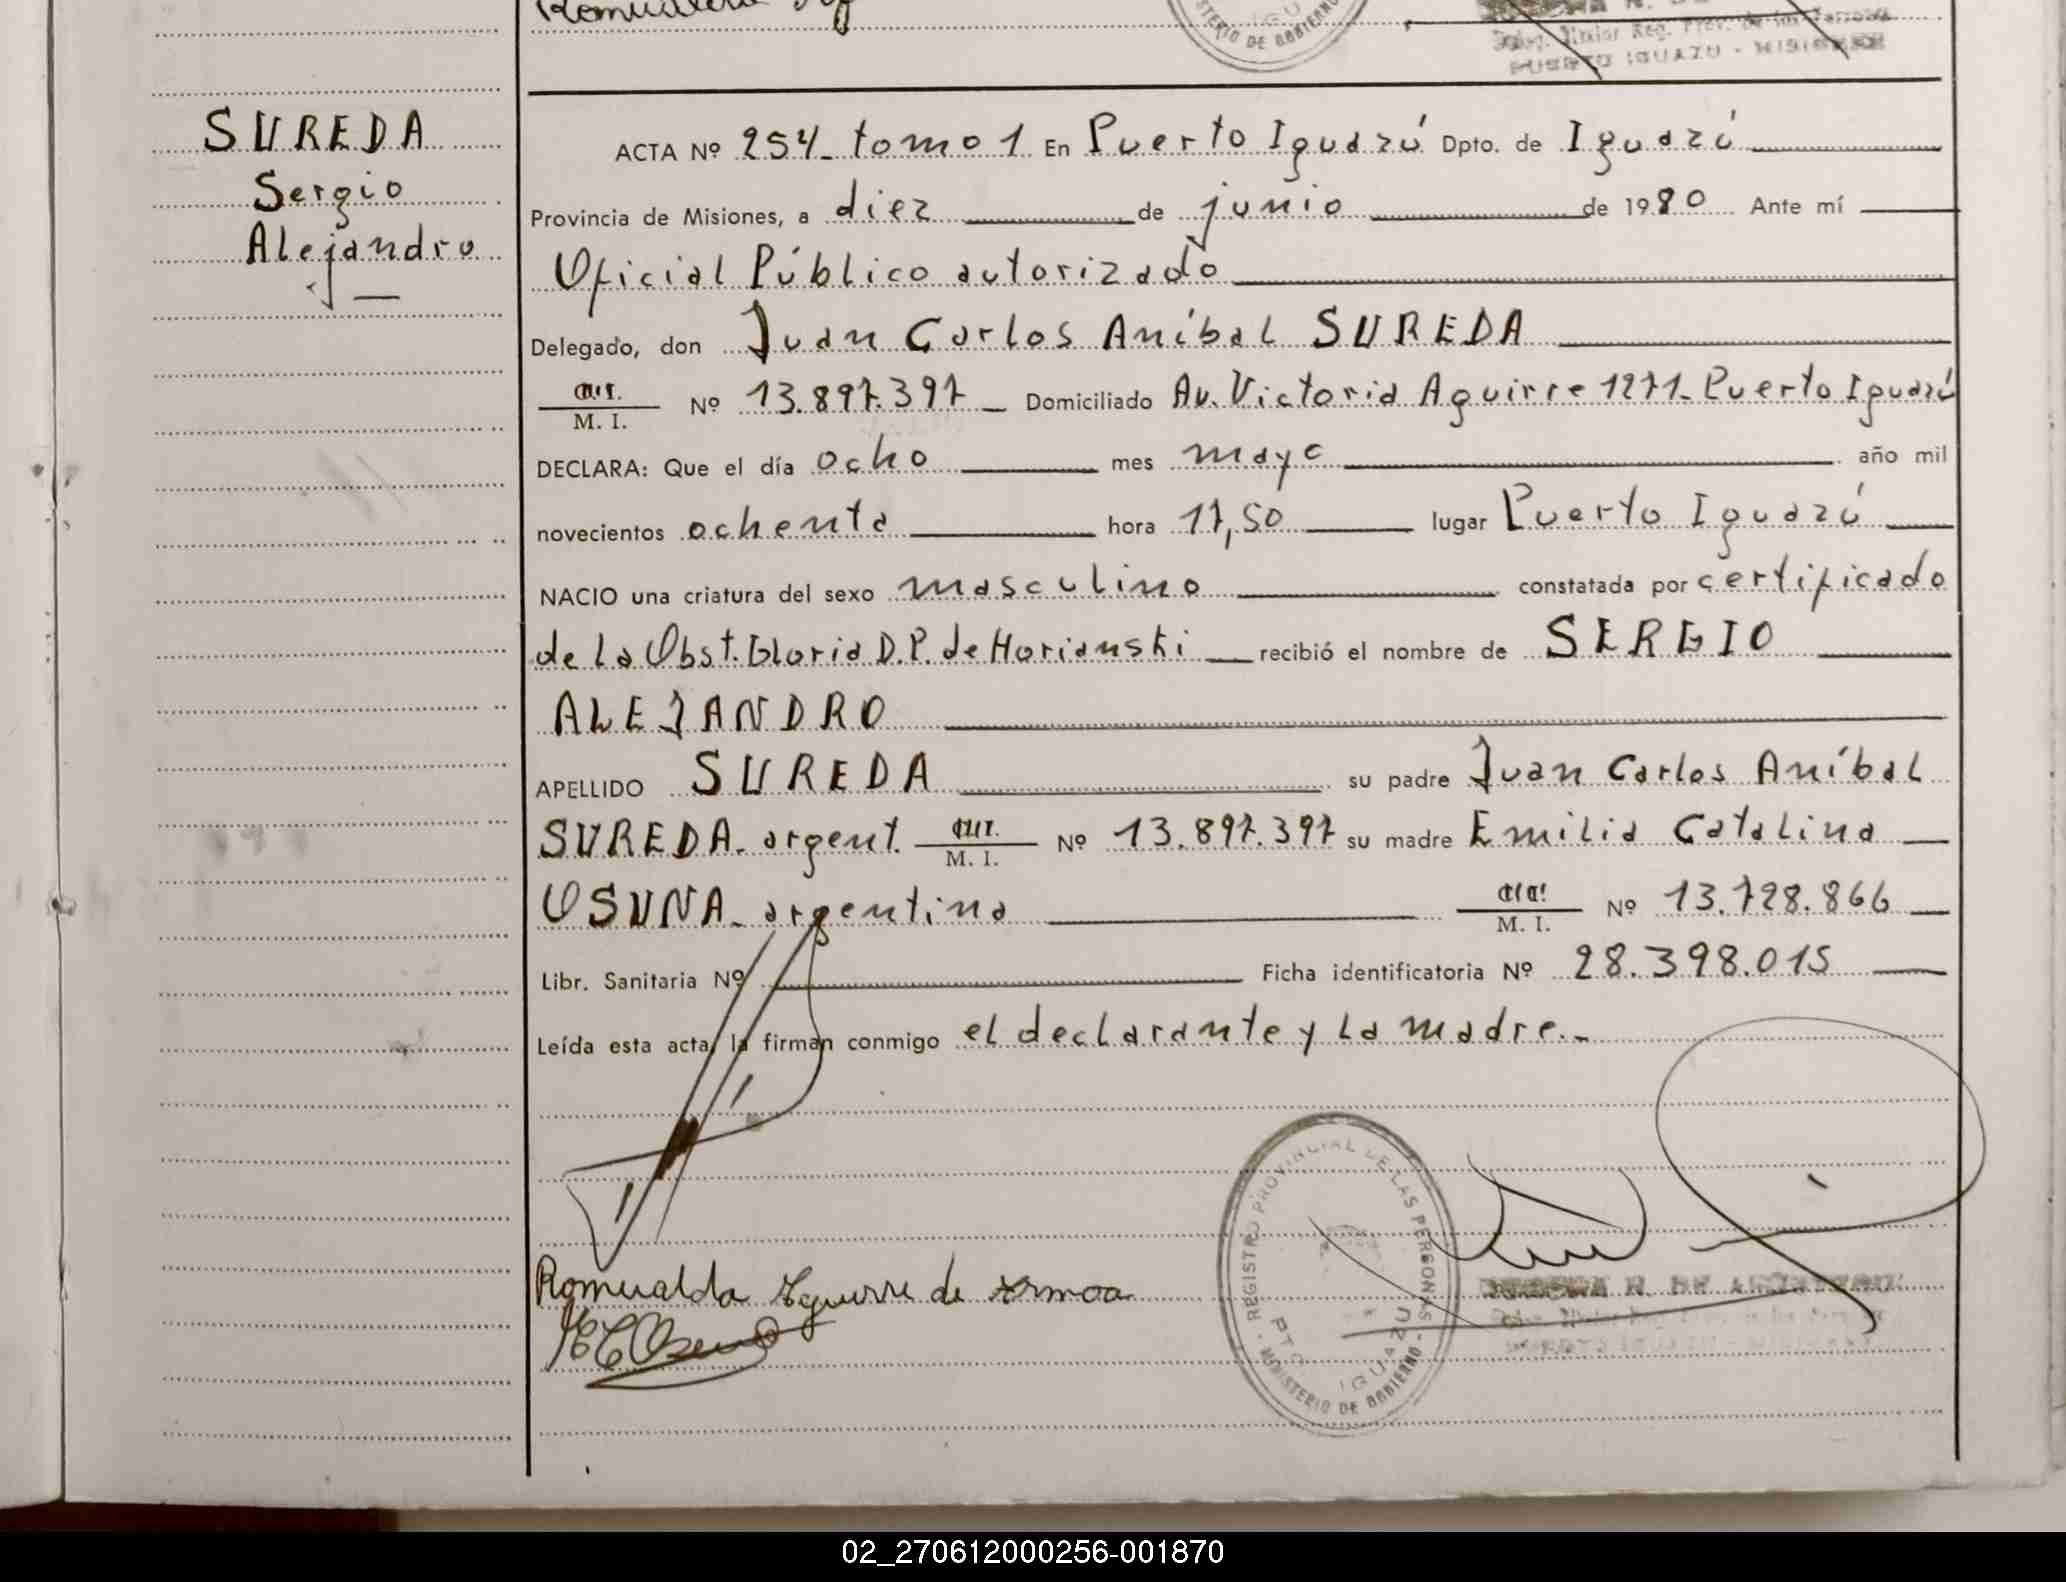 STERIO DE GOBIERNO
PUERTO IGUAZU - MISIONES
SUREDA
Sergio
Alejandro
ACTA Nº 254 - tomo 1 En Puerto Iguazú Dpto. de Iguazú
Provincia de Misiones, a diez de junio de 1980 Ante mí
Oficial Público autorizado
Delegado, don Juan Carlos Aníbal SUREDA
M. I. Nº 13.897.397 Domiciliado Av. Victoria Aguirre 1271 - Puerto Iguazú
DECLARA: Que el día ocho mes mayo año mil
novecientos ochenta hora 17,50 lugar Puerto Iguazú
NACIO una criatura del sexo masculino constatada por certificado
de la Obst. Gloria D. P. de Horianski recibió el nombre de SERGIO
ALEJANDRO
APELLIDO SUREDA su padre Juan Carlos Aníbal
SUREDA - argent. M. I. Nº 13.897.397 su madre Emilia Catalina
OSUNA - argentina M. I. Nº 13.728.866
Libr. Sanitaria Nº Ficha identificatoria Nº 28.398.015
Leída esta acta, la firman conmigo el declarante y la madre.-
REGISTRO PROVINCIAL DE LAS PERSONAS - MINISTERIO DE GOBIERNO - PTO IGUAZU
Romualda Aguirre de Armoa
02_270612000256-001870